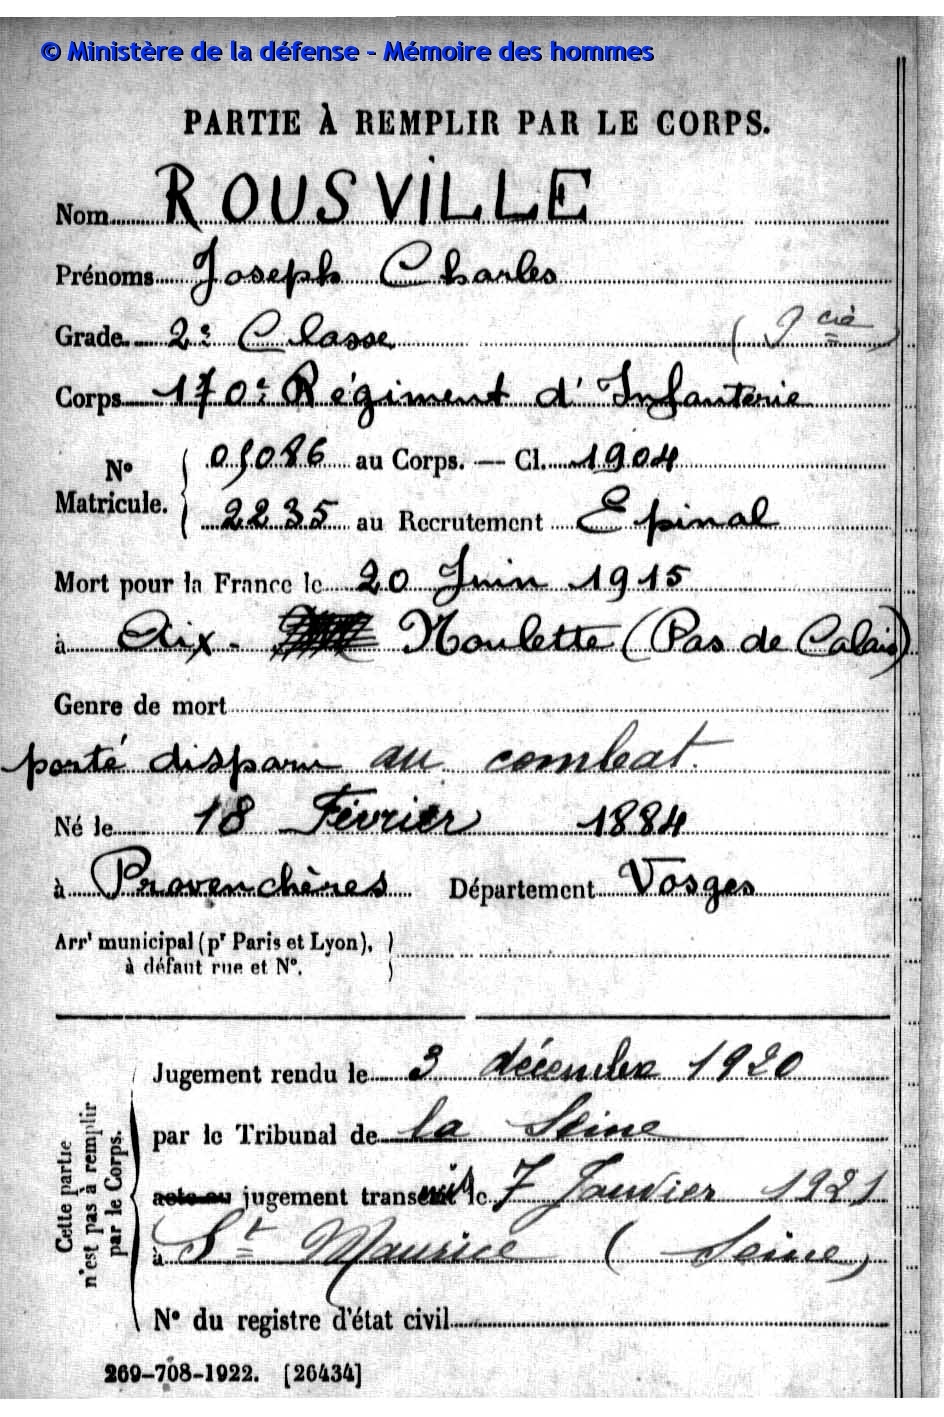 © Ministère de la défense - Mémoire des hommes
PARTIE À REMPLIR PAR LE CORPS.
Nom ROUSVILLE
Prénoms Joseph Charles
Grade 2e Classe
Corps 170e Régiment d'Infanterie
No Matricule. { 05086 au Corps. — Cl. 1904
2235 au Recrutement Epinal
Mort pour la France le 20 Juin 1915
à Aix- Noulette (Pas de Calais)
Genre de mort
porté disparu au combat.
Né le 18 Février 1884
à Provenchères Département Vosges
Arrt municipal (pr Paris et Lyon),
à défaut rue et No.
Cette partie n'est pas à remplir par le Corps.
Jugement rendu le 3 décembre 1920
par le Tribunal de la Seine
acte ou jugement transcrit le 7 Janvier 1921
à St Maurice (Seine)
No du registre d'état civil
269-708-1922. [26434]